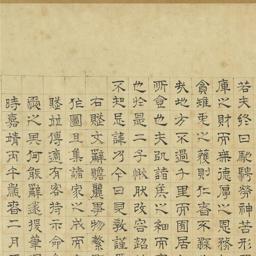 若夫終日馳騁勞神苦形
庫之財而無德厚之恩
貪雉兔之獲則仁者不繇
哉地方不過千里而囿居
所食也夫以諸侯之細而
也於是二子愀然改容
不知忌諱乃今日見教謹
右賦文辭贍麗事物繁
作圖且集諸家之成而
賦並傳適有客持示命
之異何能辭遂援筆
時嘉靖丙午歲春二月